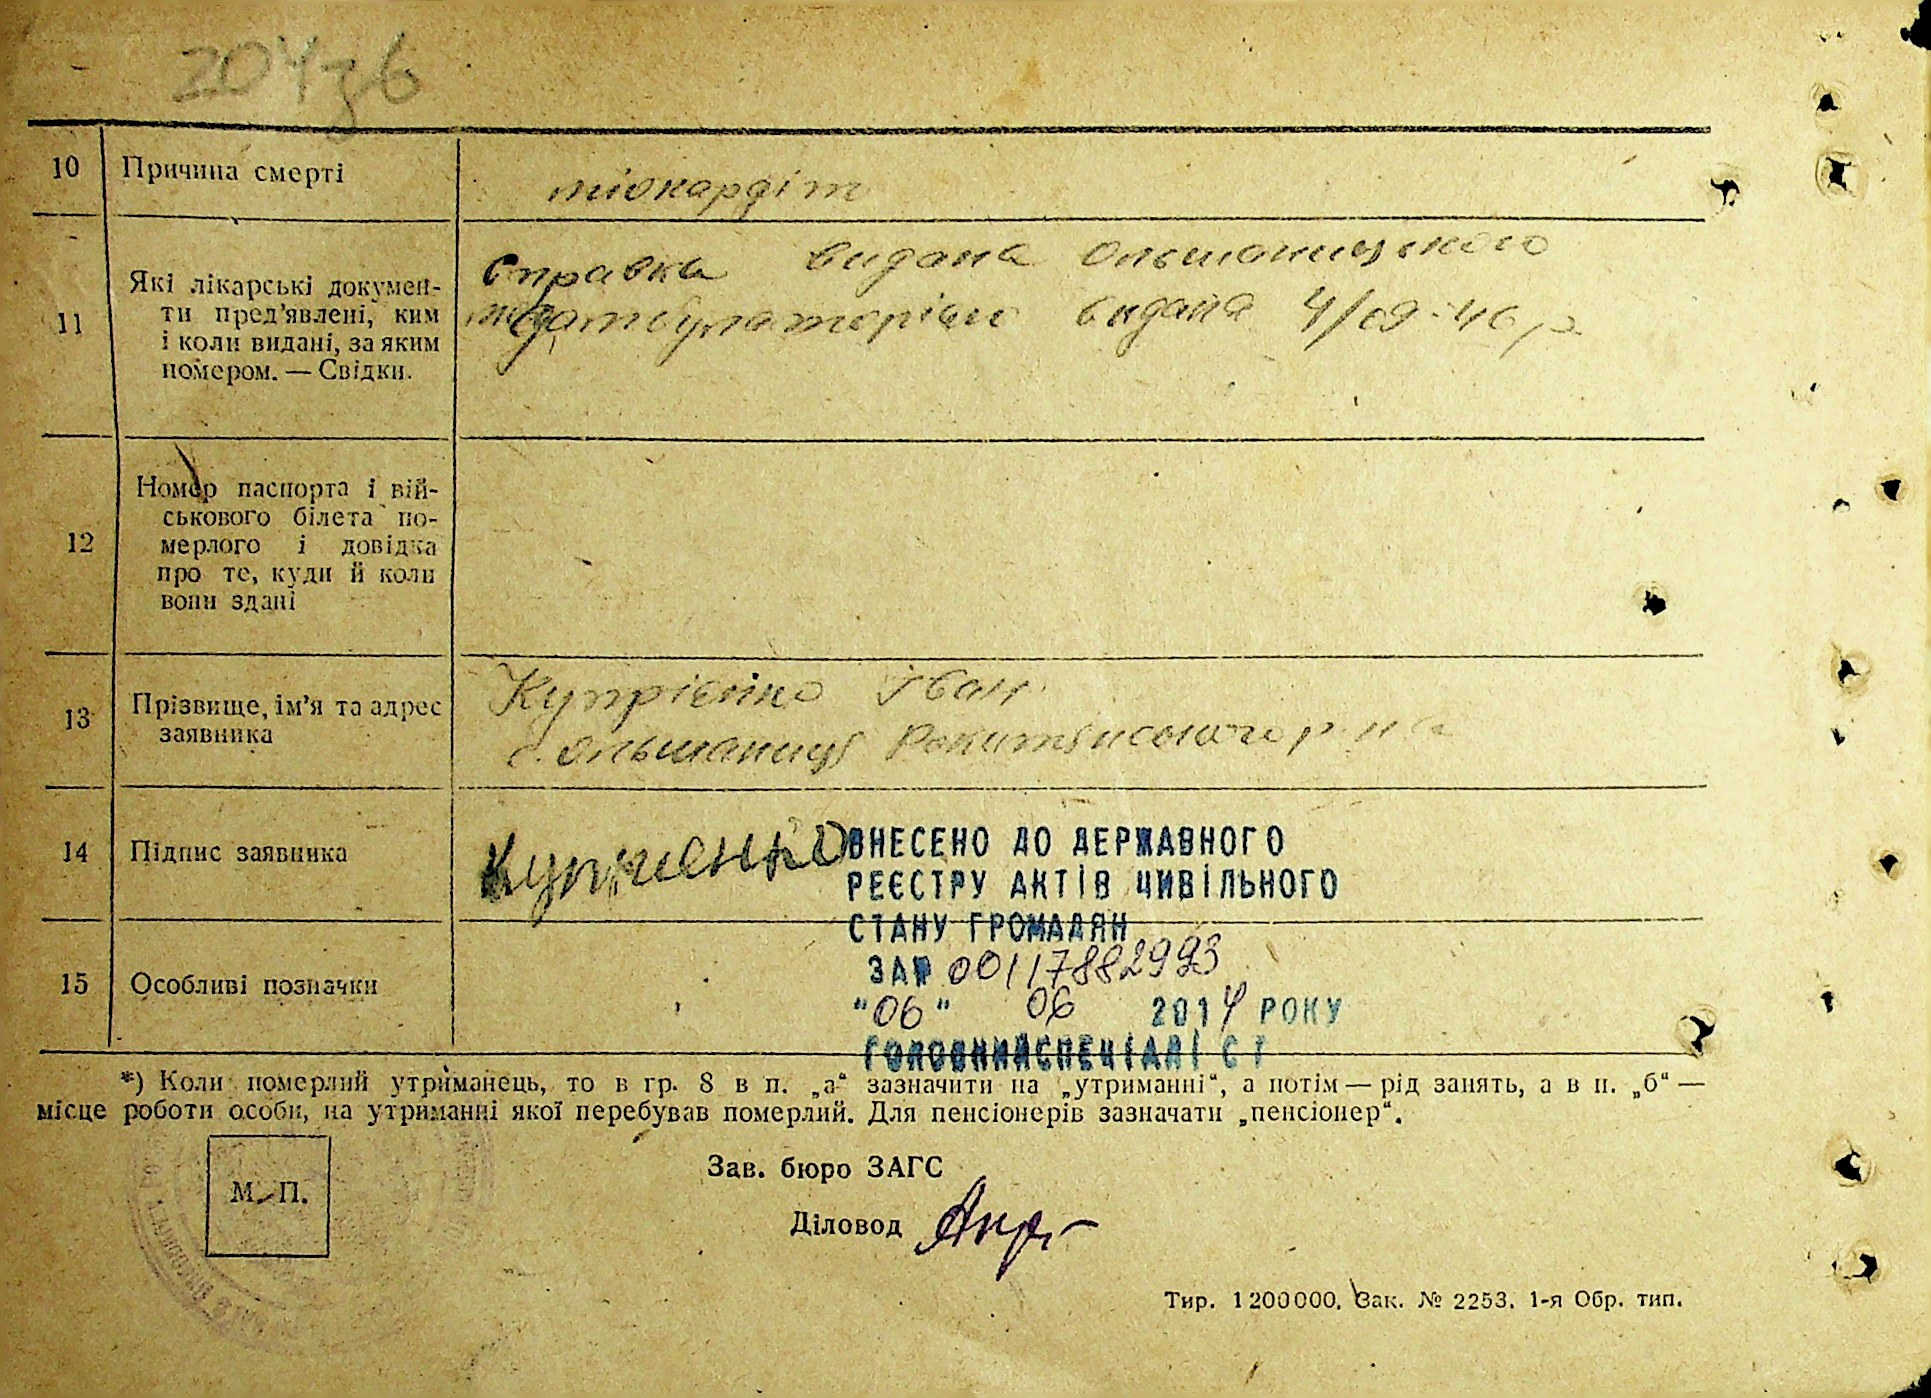 204зв
10 Причина смерті
міокардіт
11 Які лікарські докумен-
ти пред'явлені, ким
і коли видані, за яким
номером. — Свідки.
Справка видана Ольшаницького
медамбулаторією видана 4/09-46 р.
12 Номер паспорта і вій-
ськового білета по-
мерлого і довідка
про те, куди й коли
вони здані
13 Прізвище, ім'я та адрес
заявника
Купрієнко Іван
с. Ольшаниця Рокитянського р-на
14 Підпис заявника
Куприенко
ВНЕСЕНО ДО ДЕРЖАВНОГО
РЕЄСТРУ АКТІВ ЦИВІЛЬНОГО
СТАНУ ГРОМАДЯН
ЗА№ 00117882993
"06" 06 2014 РОКУ
ГОЛОВНИЙ СПЕЦІАЛІСТ
15 Особливі позначки
*) Коли померлий утриманець, то в гр. 8 в п. „а“ зазначити на „утриманні“, а потім — рід занять, а в п. „б“ —
місце роботи особи, на утриманні якої перебував померлий. Для пенсіонерів зазначати „пенсіонер“.
М. П.
Зав. бюро ЗАГС
Діловод
Тир. 1200000. Зак. № 2253. 1-я Обр. тип.